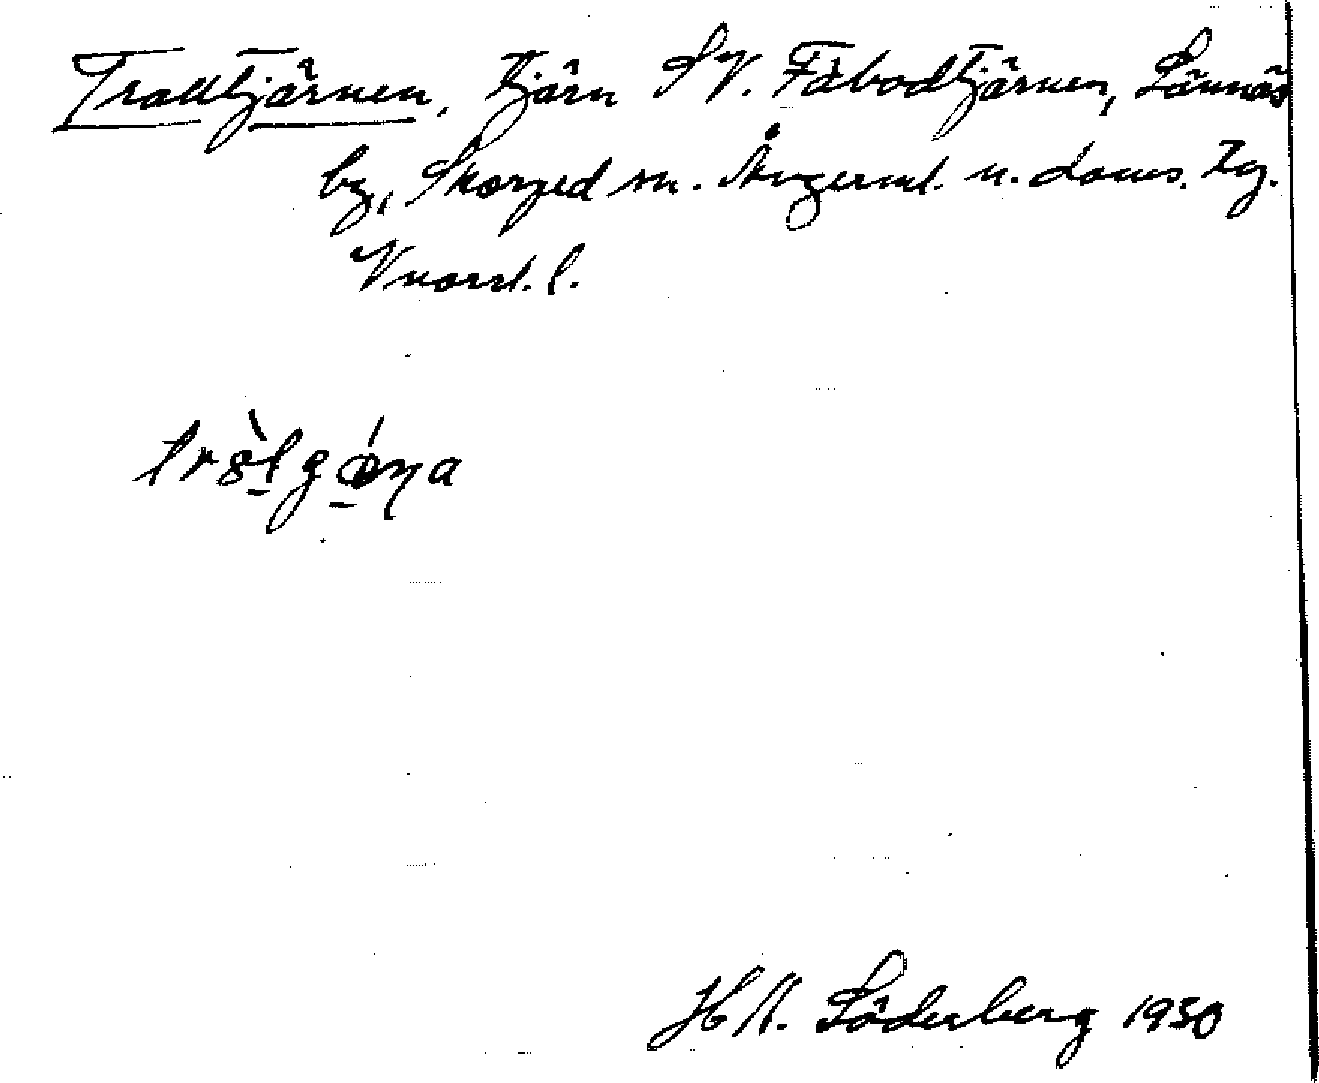 Trolltjärnen, tjärn SV. Fäbodtjärnen, Lännäs
by, Skorped sn. Ångerml. n. doms. Tg.
V norrl. l.
H N. Söderberg 1930